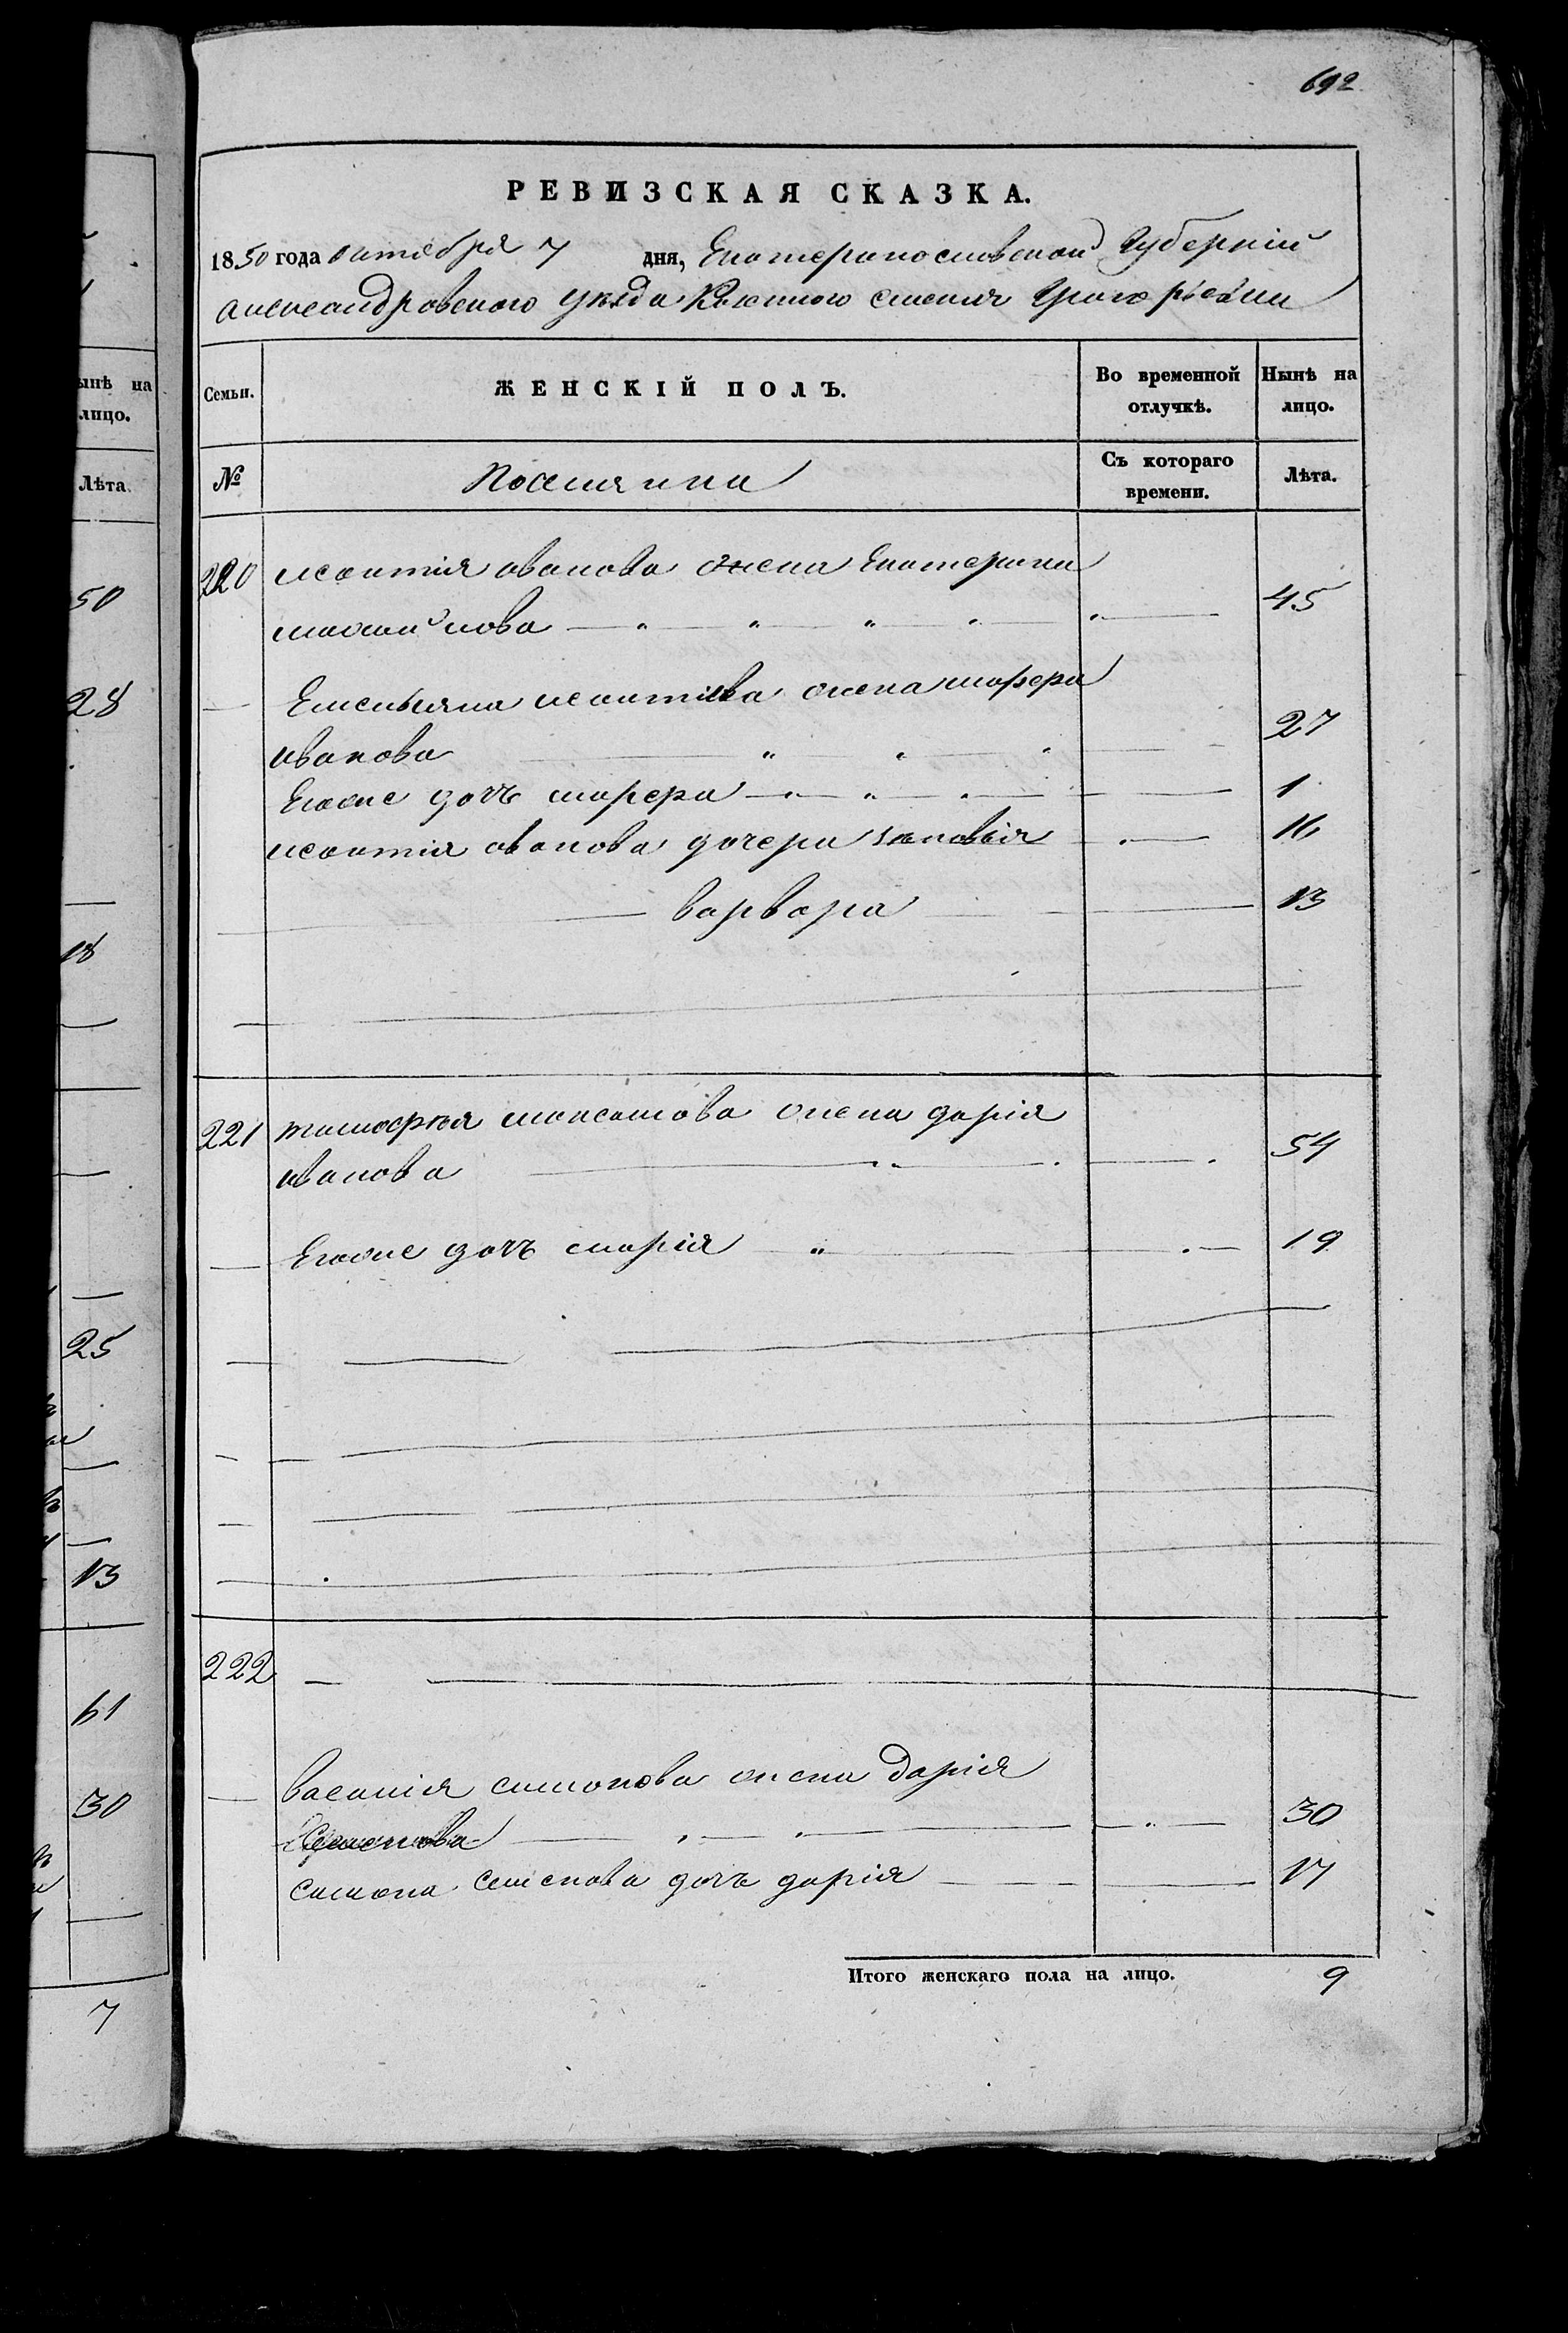 692
РЕВИЗСКАЯ СКАЗКА.
1850 года октября 7 дня, Екатеринославской Губерніи
александровского уезда Казенного селенія Григорьевки
Семьи.
ЖЕНСКІЙ ПОЛЪ.
Во временной отлучкѣ.
Нынѣ на лицо.
№
Поселянки
Съ котораго времени.
Лѣта.
220 леонтія иванова жена Екатерина
45
Емельяна леонтіева жена
иванова 27
Егоже дочь 1
леонтія иванова дочери зеновія 16
варвара 13
221 тимофея максимова жена дарія
иванова 54
Егоже дочь марія 19
222
василія симонова жена дарія
30
симона семенова дочь дарія 17
Итого женскаго пола на лицо. 9
ынѣ на
лицо.
Лѣта.
50
28
18
25
13
61
30
7